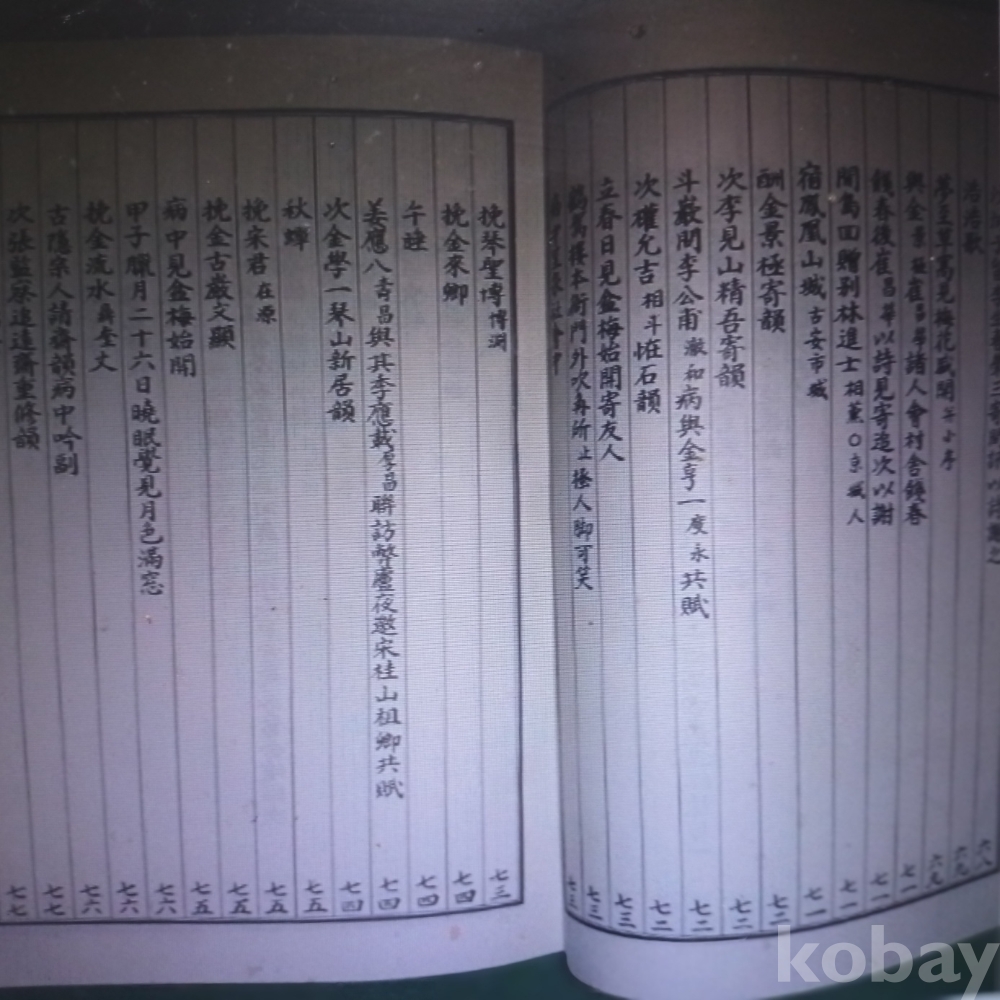 浩浩歌 六九
與金景極崔昌舜諸人會村舍餞春 七一
餞春後崔昌舜以詩見寄追次以謝 七一
贈別林進士相薰○京城人 七一
宿鳳凰山城古安市城 七一
酬金景極寄韻 七二
次李見山精吾寄韻 七二
斗巖問李公甫澈和病與金亨一度永共賦 七二
次權允吉相斗恠石韻 七二
立春日見盆梅始開寄友人 七三
本衙門外吹 所上 人脚可笑 七三
七三
挽琴聖博博淵 七三
挽金來卿 七四
午睡 七四
姜應八昌與其季應載厚昌聯訪弊廬夜邀宋桂山祖卿共賦 七四
次金學一琴山新居韻 七四
秋蟬 七五
挽宋君在源 七五
挽金古巖文顯 七五
病中見盆梅始開 七六
甲子臘月二十六日曉眠覺見月色滿窓 七六
挽金流水奎丈 七六
古隱宗人請齋韻病中吟副 七七
次張監察追遠齋重修韻 七七
kobay